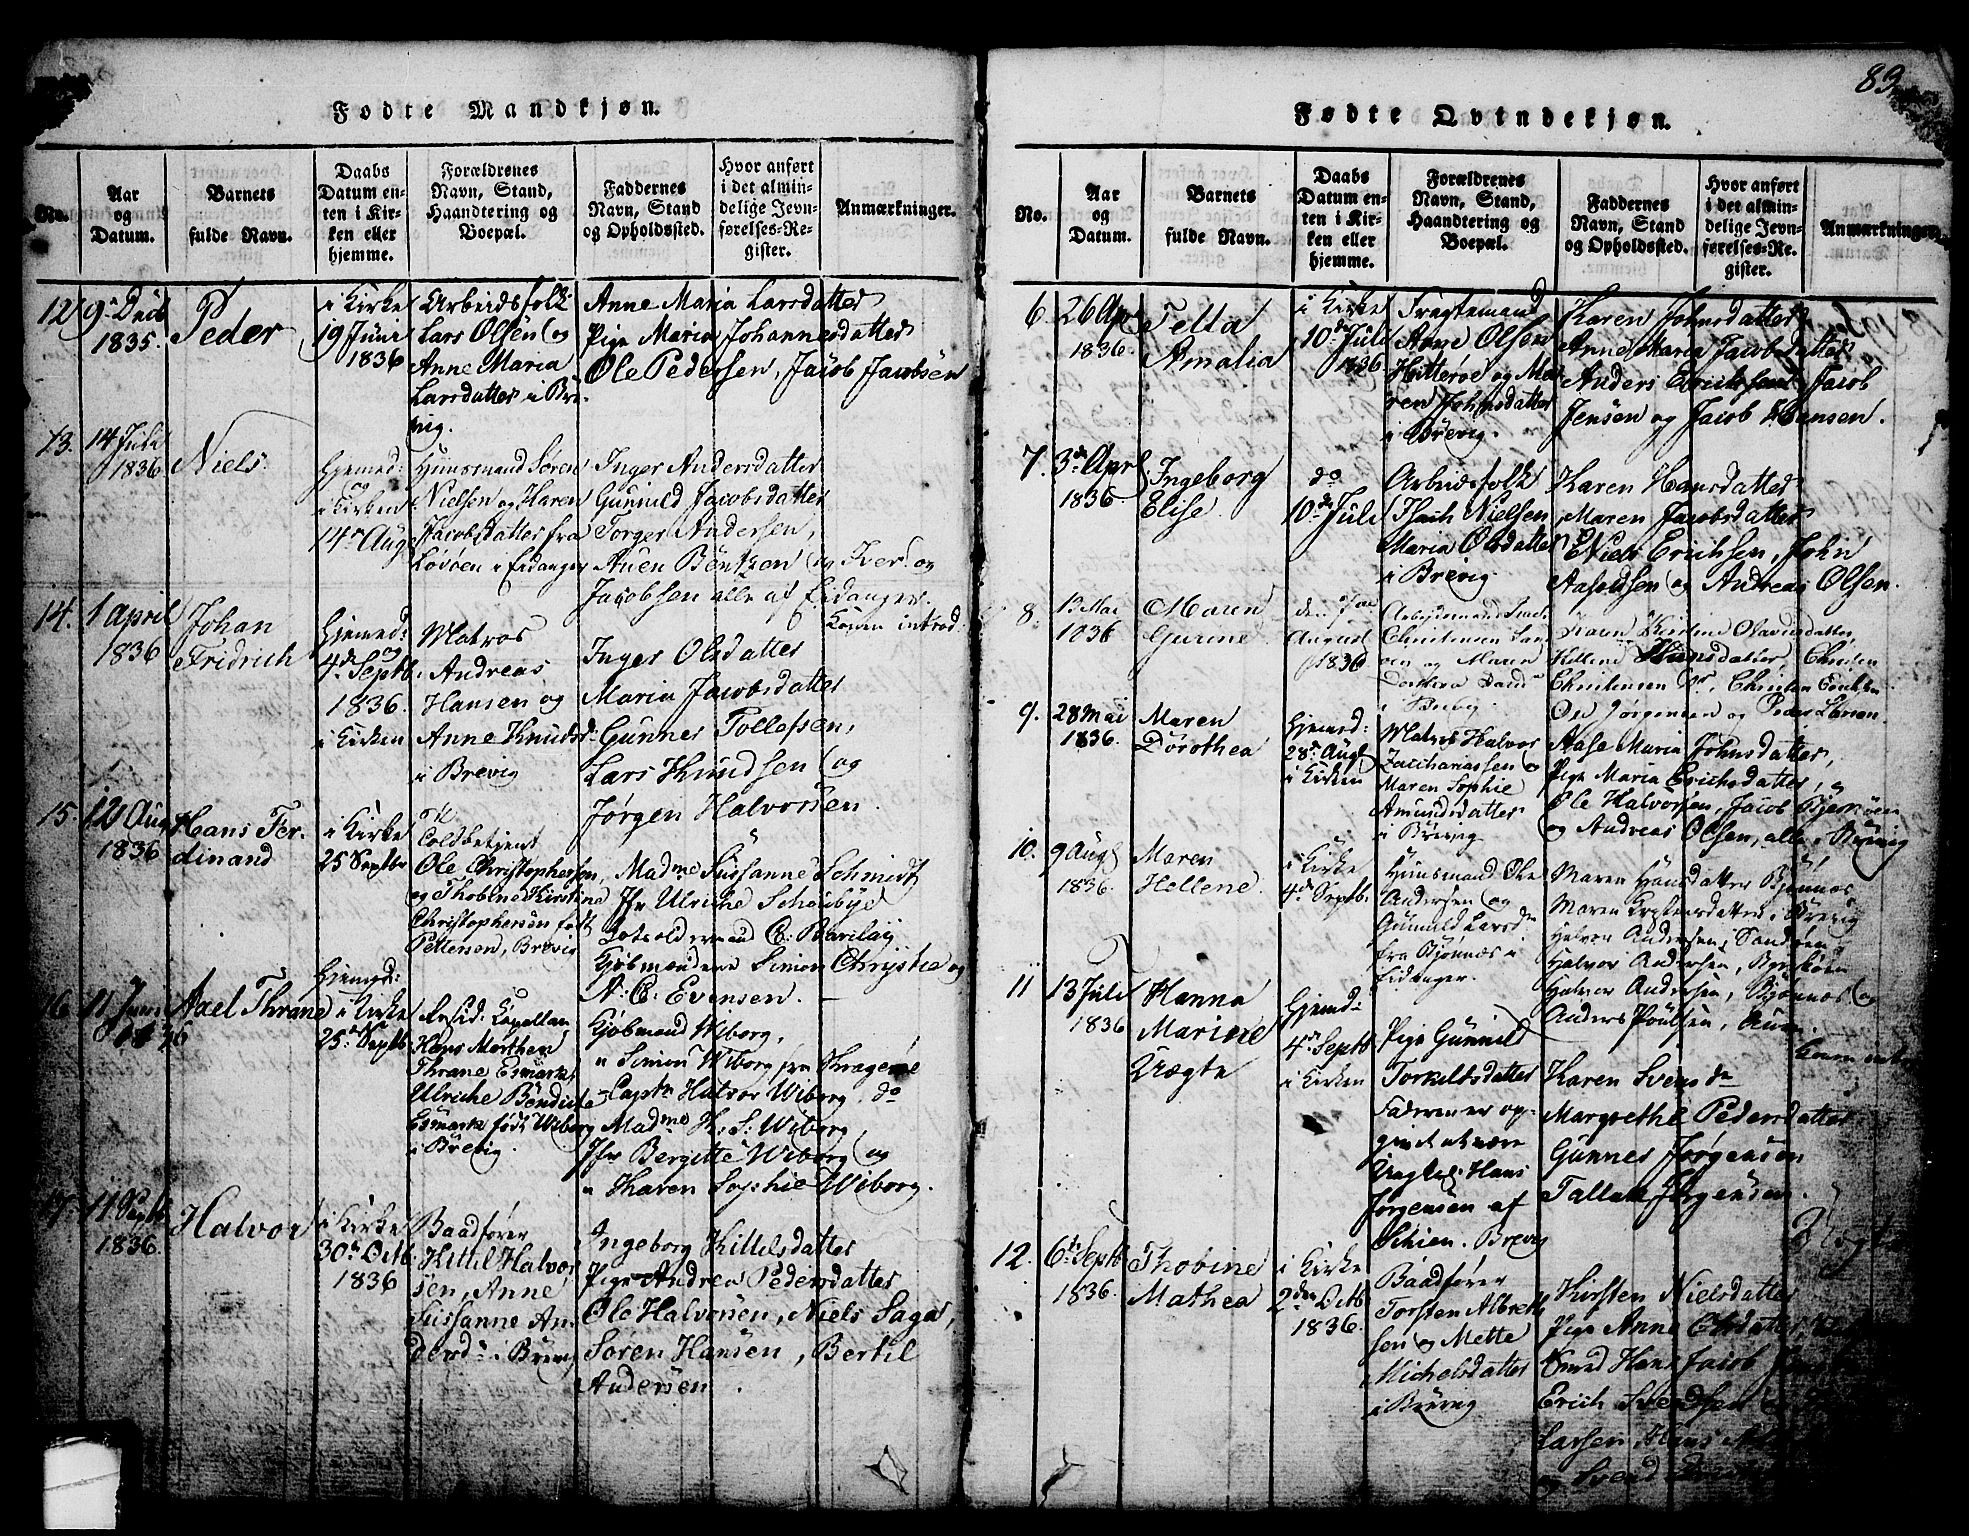 83
Fødte Mandkjøn.
No.
Aar og Datum.
Barnets fulde Navn.
Daabs Datum enten i Kirken eller hjemme.
Forældrenes Navn, Stand, Haandtering og Boepæl.
Faddernes Navn, Stand og Opholdssted.
Hvor anført i det almindelige Jevnførelses-Register.
Anmærkninger.
12
9 Decb
1835.
Peder
i Kirke
19 Juni
1836
Arbeidsfolk
Lars Olsen og
Anne Maria
Larsdatter i Bre-
vig.
Anne Maria Larsdatter
Pige Maria Johannesdatter
Ole Pedersen, Jacob Jacobsen
13.
14 Juli
1836
Niels.
Hjemed:
og
i Kirken
14 Aug
Huusmand Søren
Nielsen og Karen
Jacobsdatter fra
Løvøen i Eidanger
Inger Andersdatter
Gunnild Jacobsdatter
Torger Andersen,
Auen Bentzen og Iver og
Jacobsen alle af Eidanger.
14.
1 april
1836
Johan
Fridrich
Hjemed:
og
4de Septb
1836.
i Kirken
Matros
Andreas
Hansen og
Anne Knudsd:
i Brevig
Inger Olsdatter
Maria Jacobsdatter
Gunner Tollefsen,
Lars Knudsen og
Jørgen Halvorsen.
Konen introd:
15.
12 Aug
1836
Hans Fer-
dinand
i Kirke
25 Septbr
Toldbetjent
Ole Christophersen,
og Thobine Kirstine
Christophersen født
Pettersen, Brevig
Madme Sussanne Schmidt
Jfr Ulriche Schøibye
Lotsoldermand C: Barclay
Kjøbmændene Simon Chrystie og
N: C: Evensen.
16.
11 Juni
1836
Axel Thrane
Hjemed:
i Kirke
25 Septb
Resid: Capellan
Hans Morthen
Thrane Esmark,
Ulriche Bendicte
Esmark født Wiborg
i Brevig.
Kjøbmand Wiborg,
" Simon Wiborg fra Kragerøe
Captn Halvor Wiborg do
Madme H. S. Wiborg,
Jfr Bergitte Wiborg og
" Karen Sophie Wiborg.
17.
11 Septb
1836.
Halvor
i Kirke
30 Octb
1836
Baadfører
Kittel Halvor
sen, Anne
Sussanne An
dersd: i Brevig
Ingeborg Kittelsdatter
Pige Andrea Pedersdatter
Ole Halvorsen, Niels Saga,
Søren Hansen, Bertil
Andersen.
Fødte Qvindekjøn.
No.
Aar og Datum.
Barnets fulde Navn.
Daabs Datum enten i Kirken eller hjemme.
Forældrenes Navn, Stand, Haandtering og Boepæl.
Faddernes Navn, Stand og Opholdssted.
Hvor anført i det almindelige Jevnførelses-Register.
Anmærkninger.
6.
26 Apr
1836.
Tella
Amalia
i Kirke
10de Juli
1836
Fragtemand
Arne Olsen
Hitterøe og Ma
ren Johnsdatter
i Brevig.
Karen Johnsdatter
Anne Maria Jacobsdatter
Anders Erichsen, Jacob
Jensen og Jacob Hansen.
7.
3de Apr
1836.
Ingeborg
Elise.
do
10de Juli
Arbeidsfolk
Isach Nielsen
Maria Olsdatter
i Brevig.
Karen Hansdatter
Maren Jacobsdatter
Niels Erichsen, John
Aasoldsen og Andreas Olsen.
8.
13 Mai
1836
Maren
Gurine
den 7de
August
1836
Arbeidsmand
Christensen
og Maren
Dorthea
i Brevig
Karen Kirstine Olavusdatter,
Hansdatter, Christen
Christensen, Christen
Ole Jørgensen og Peder Larsen.
9.
28 Mai
1836.
Maren
Dorothea
Hjemed:
28 Aug
i Kirken
Matros Halvor
Zachariassen og
Maren Sophie
Amundsdatter
i Brevig
Aase Maria Johnsdatter,
Pige Maria Erichsdatter,
Ole Halvorsen, Jacob Bjerkøen
og Andreas Olsen, alle i Brevig
10.
9 Aug
1836.
Maren
Hellene.
i Kirke
4de Septb.
Huusmand Ole
Andersen og
Gunnild Larsd
fra Bjønnæs i
Eidanger.
Maren Hansdatter Bjønnæs
Maren Christensdatter i Brevig
Halvor Andersen, Sandøen
Halvor Andersen, Bjerkøen
Halvor Andersen, Bjønnæs og
Anders Poulsen, Auen.
11
13 Juli
1836
Hanna
Marine
Vægte
Hjemd:
4 Septb
i Kirken
Pige Gunnild
Torkeltsdatter
Faderen er op-
givet at være
Hans
Jørgensen af
Schien. Brevig
Karen Svensdr
Margrethe Pedersdatter
Gunner Jørgensen
Tallak Jørgensen.
Konen introd
12.
6te Septb
1836.
Thobine
Mathea
i Kirke
2den Octb
1836.
Baadfører
Torsten Albrett
sen og Mette
Michelsdatter
i Brevig
Kirsten Nielsdatter
Pige Anne Olsdatter,
Smed Hans Jacob
Erich Svendsen
Larsen, Hans
og Svend